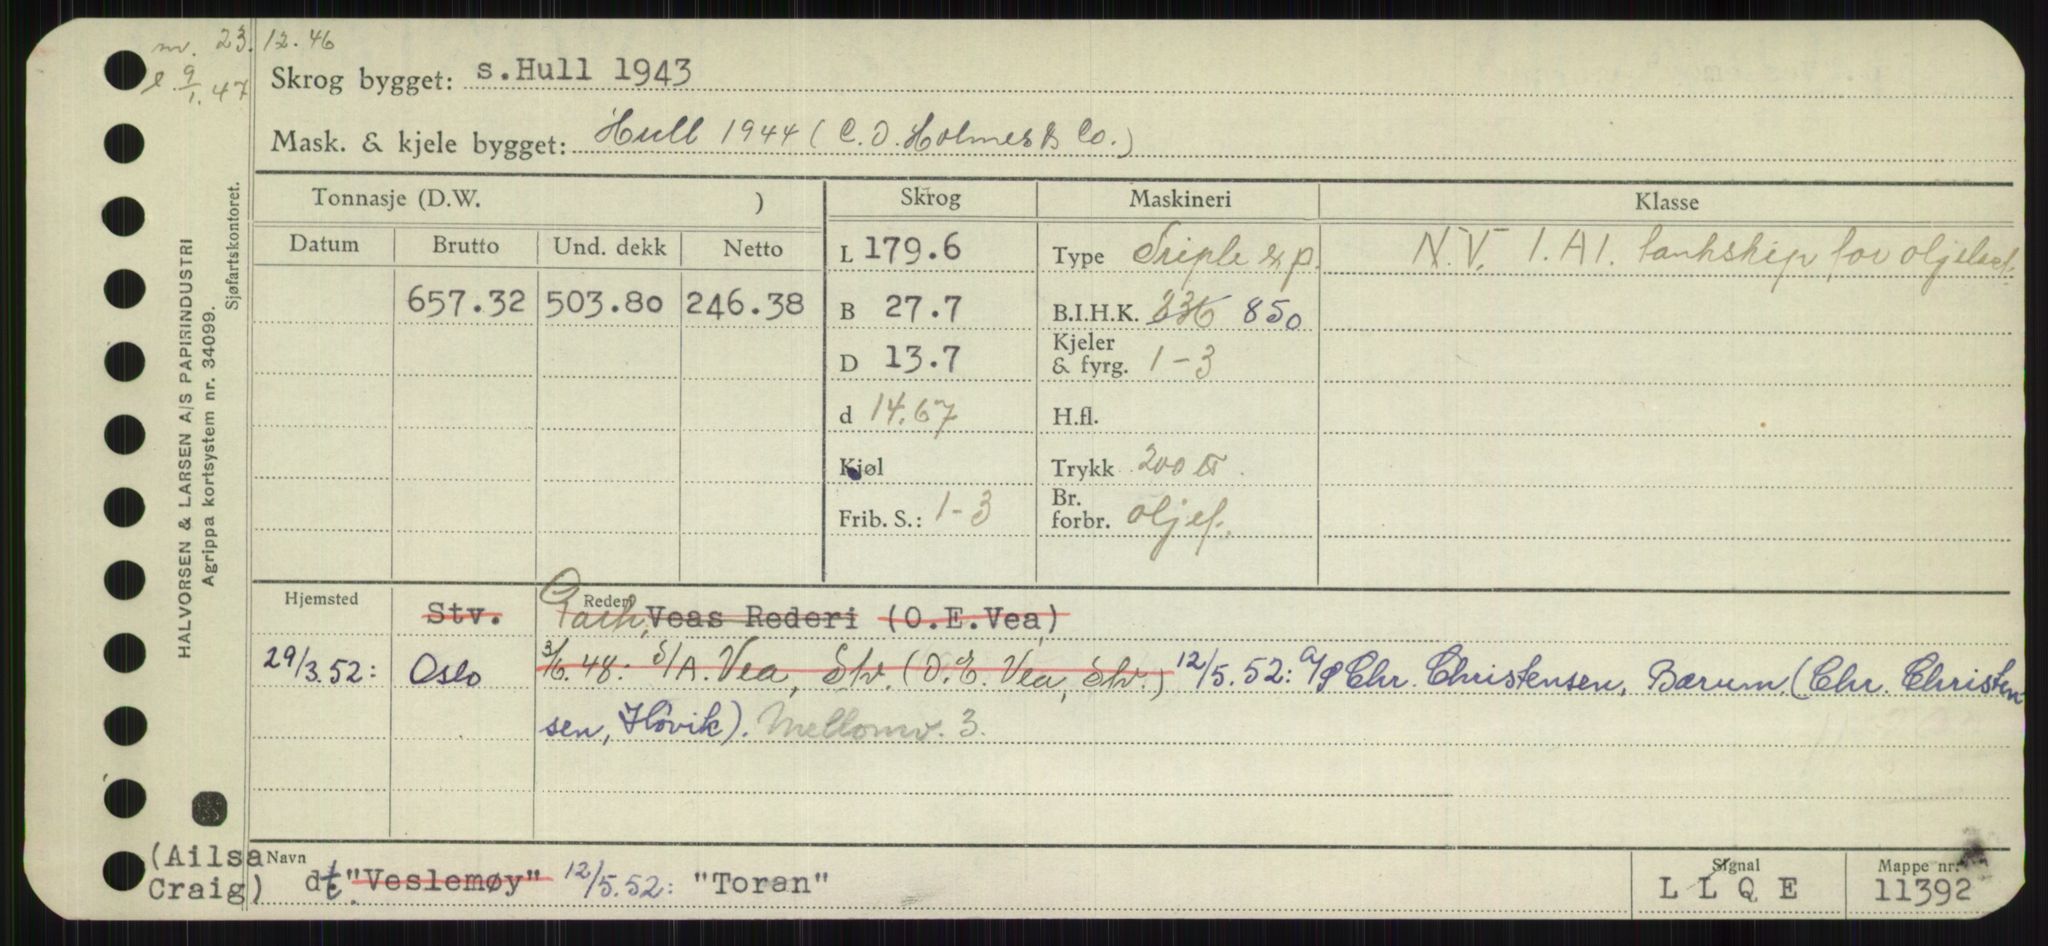 nv. 23.12.46
l 9/1.47
Skrog bygget: s.Hull 1943
Mask. & kjele bygget: Hull 1944 (C.D. Holmes & Co.)
HALVORSEN & LARSEN A/S PAPIRINDUSTRI
Agrippa kortsystem nr. 34099.
Sjøfartskontoret.
Tonnasje (D.W. ) Skrog Maskineri Klasse
Datum Brutto Und. dekk Netto L 179.6 Type Triple exp. N.V. 1.A1. tankskip for oljelast.
657.32 503.80 246.38 B 27.7 B.I.H.K. 236 850
D 13.7 Kjeler & fyrg. 1-3
d 14.67 H.fl.
Kjøl Trykk 200 ℔.
Frib. S.: 1-3 Br. forbr. oljef.
Hjemsted Stv. Rederi Veas Rederi (O.E.Vea)
29/3.52: Oslo 3/6.48. S/A. Vea, Stv. (O.E. Vea, Stv.) 12/5.52: A/S Chr. Christensen, Bærum. (Chr. Christen-
sen, Høvik). Mellomv. 3.
(Ailsa Craig) Navn dt "Veslemøy" 12/5.52: "Toran" Signal L L Q E Mappe nr. 11392